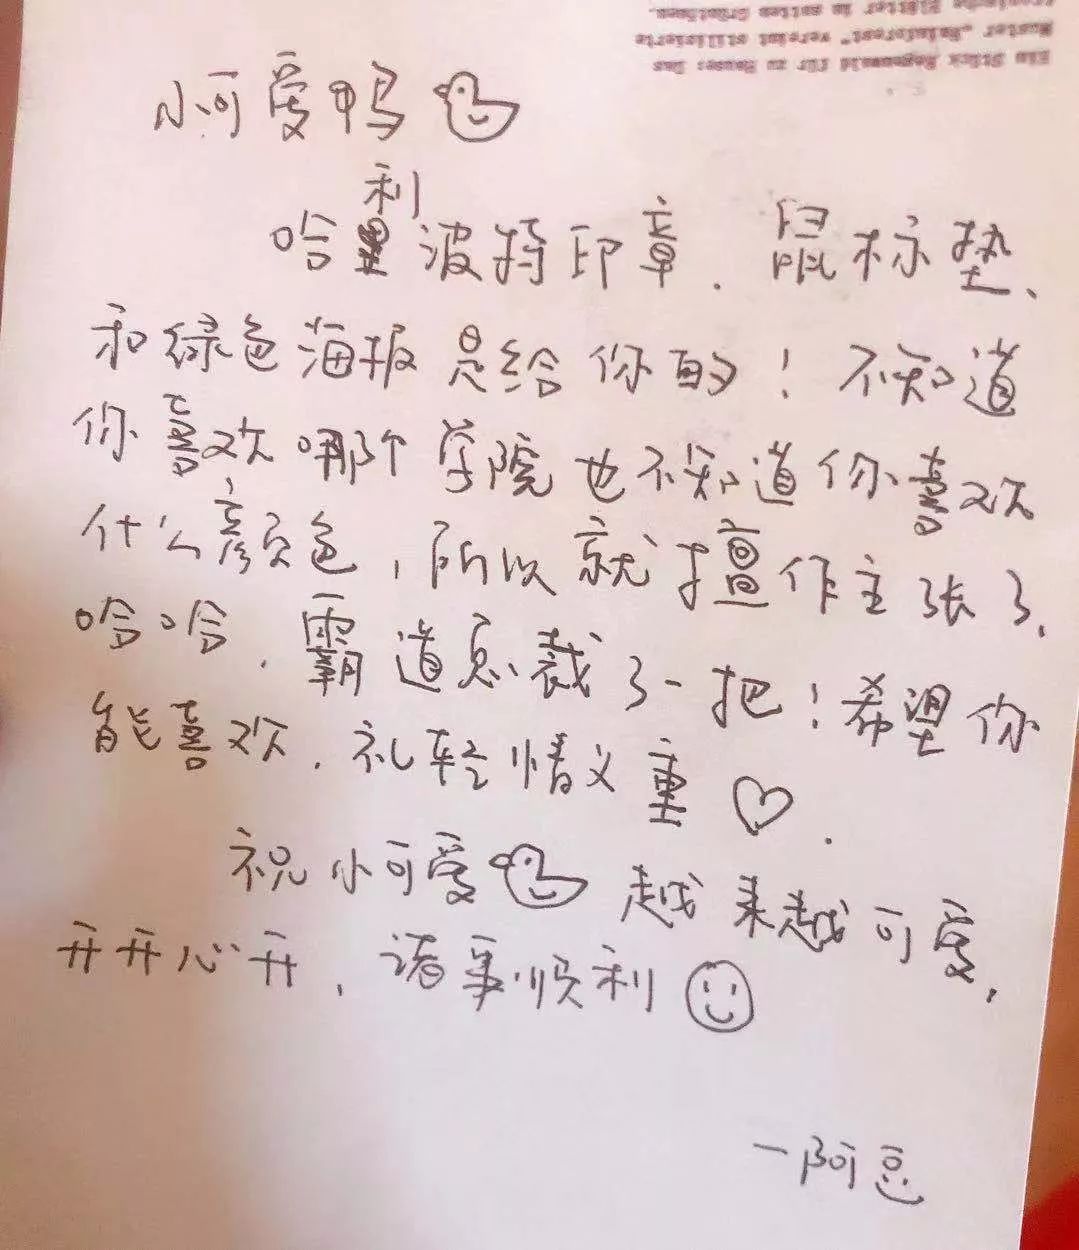 Ein Stück Regenwald für zu Hause: Das
Muster „Rainforest“ vereint stilisierte
Blätter in satten Grüntönen.
小可爱鸭
哈利波特印章、鼠标垫、
和绿色海报是给你的！不知道
你喜欢哪个学院也不知道你喜欢
什么颜色，所以就擅作主张了、
哈哈、霸道总裁了一把！希望你
能喜欢、礼轻情义重♡.
祝小可爱 越来越可爱,
开开心开、诸事顺利☺
—阿豆